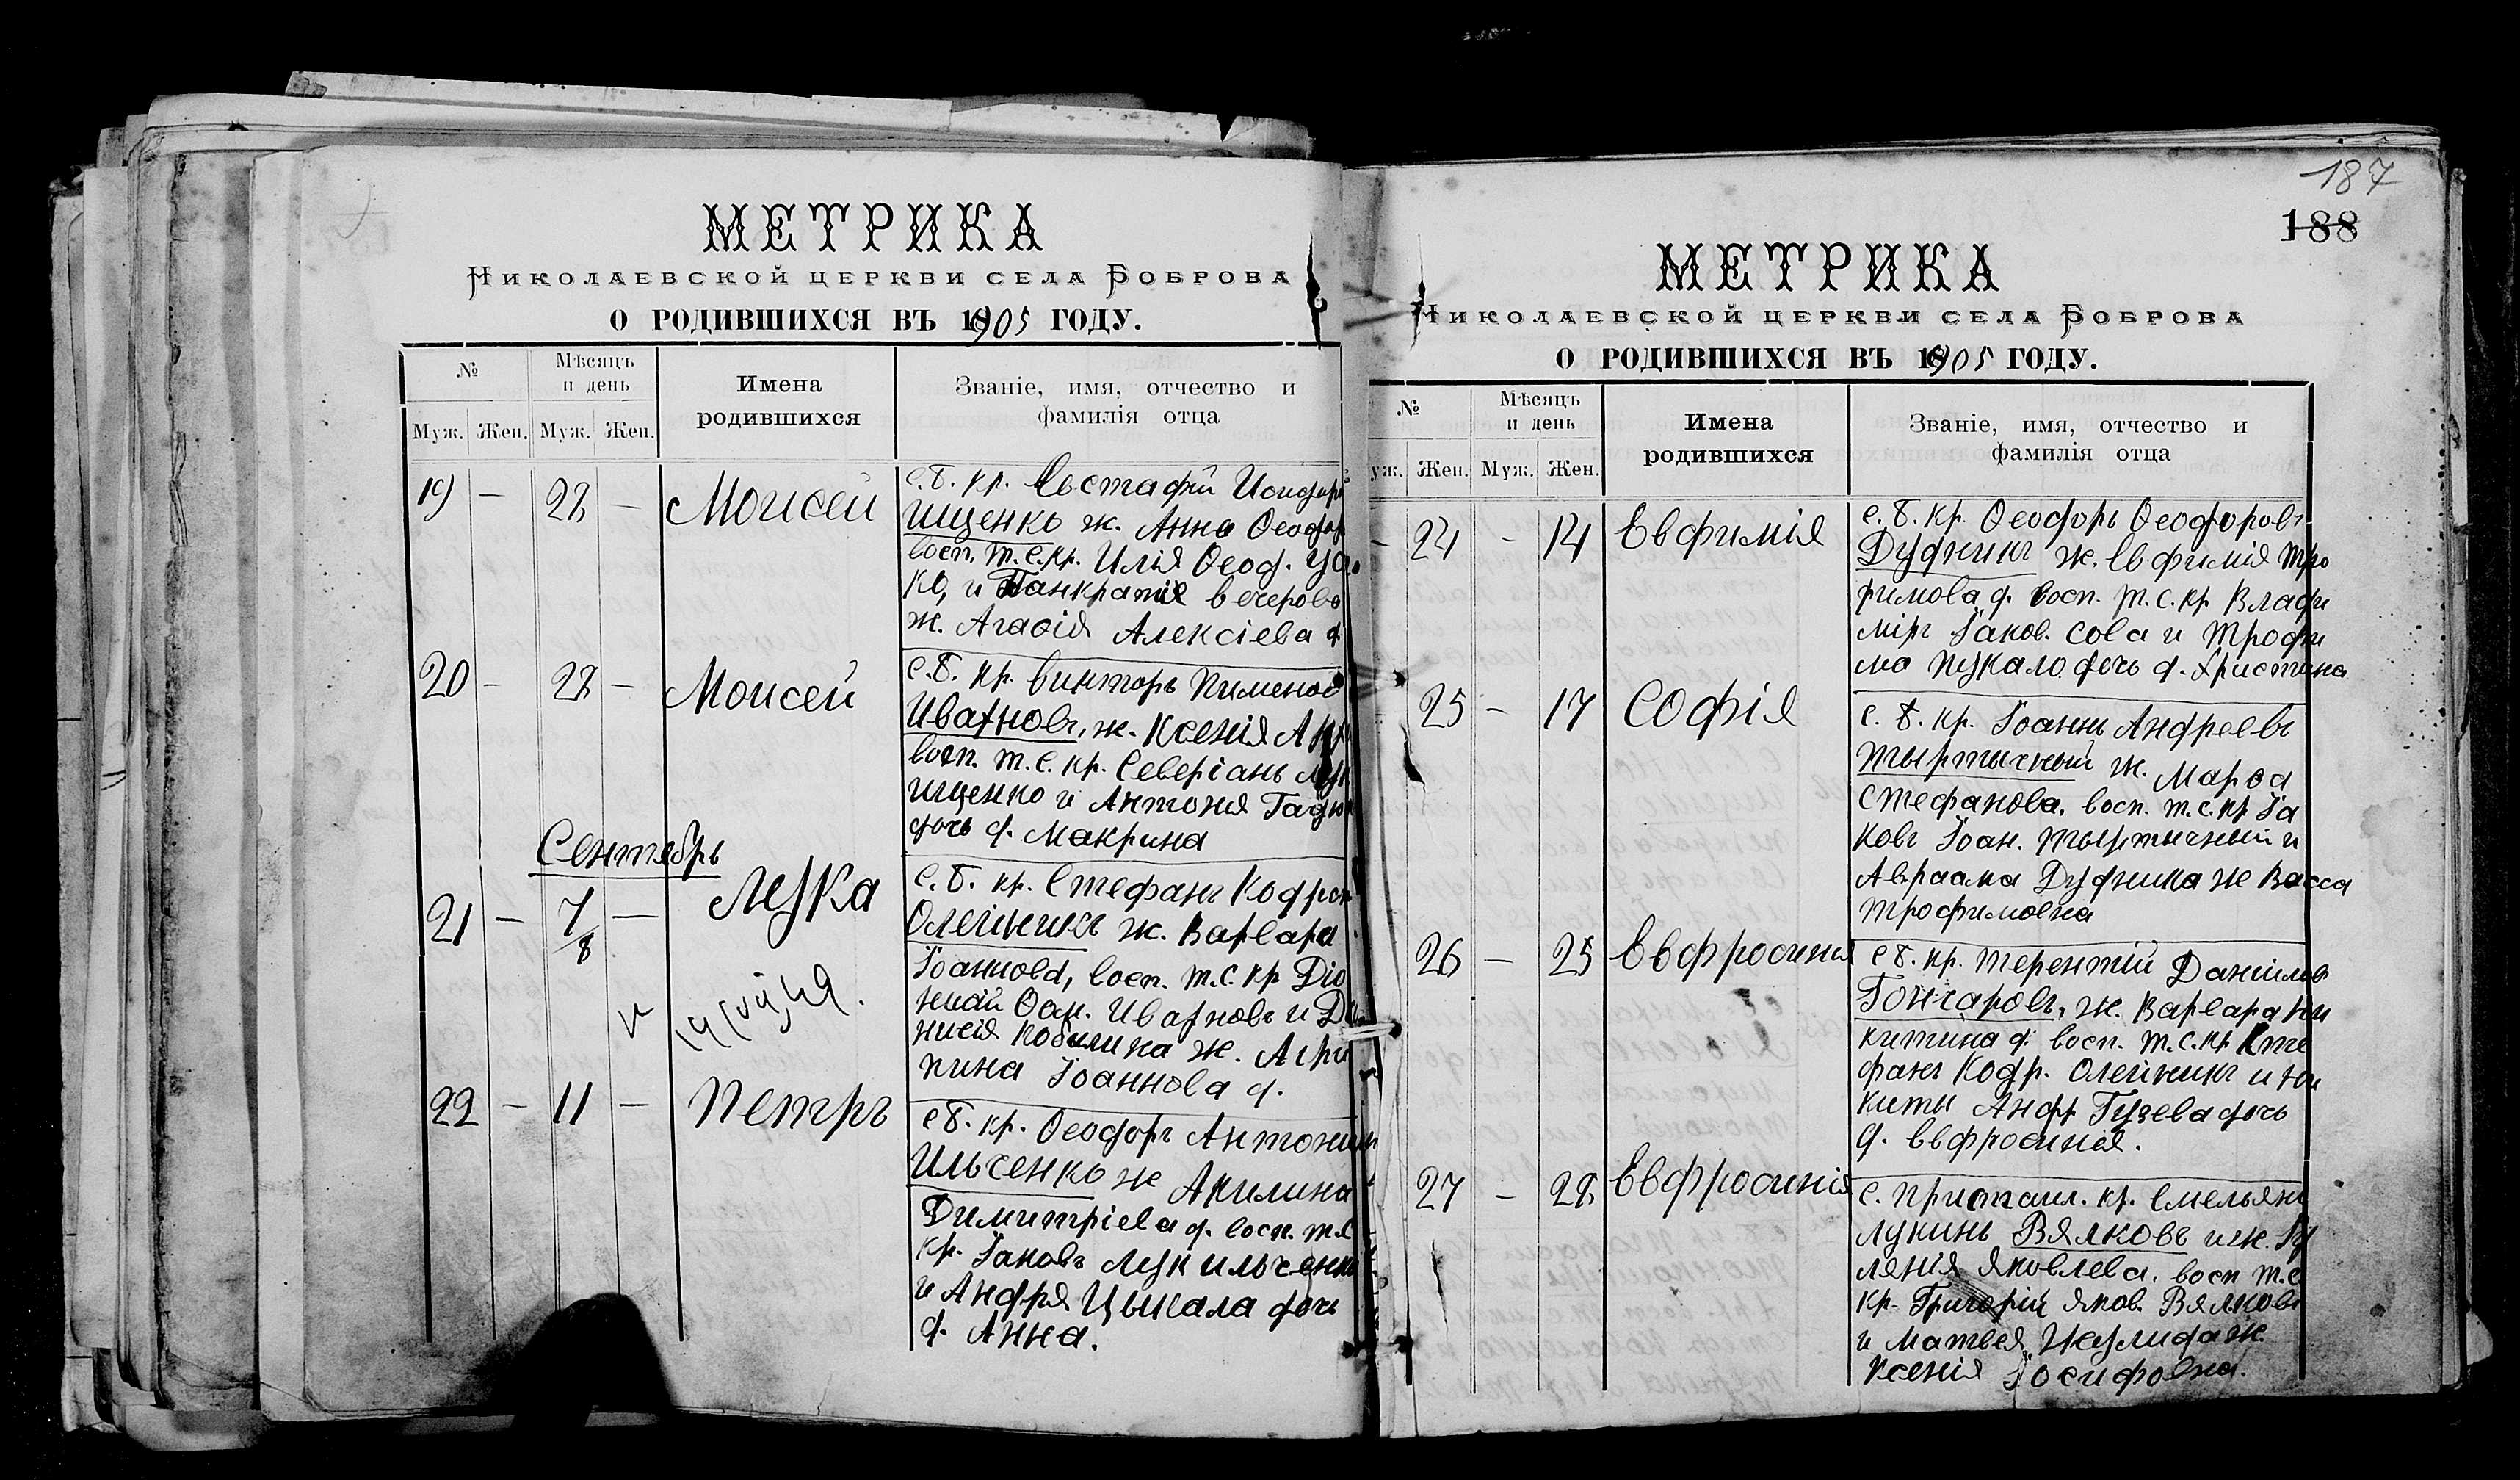 МЕТРИКА
Николаевской церкви села Боброва
О РОДИВШИХСЯ ВЪ 1905 ГОДУ.
№
Мѣсяцъ и день
Имена родившихся
Званіе, имя, отчество и фамилія отца
Муж. Жен. Муж. Жен.
19 — 28 — Моисей
с. Б. кр. Евстафій
Ищенко ж. Анна Ѳеодор
восп. т. с. кр. Илія Ѳеод.
ко, и Панкратія
ж. Агаѳія Алексіева д.
20 — 28 — Моисей
с. Б. кр. Викторъ Пименов
Ивахновъ, ж. Ксенія
восп. т. с. кр. Северіанъ Лук
ищенко и Антонія
дочь д. Макрина
Сентябрь
21 — 7/8 — Лука
с. Б. кр. Стефанъ Кодрат
Олейникъ ж. Варвара
Іоаннова, восп. т. с. кр. Діо
нисій Іоан. Ивахновъ и Ді
нисія Кобилика ж. Агри
пина Іоаннова д.
22 — 11 — Петръ
с. Б. кр. Ѳеодоръ Антонин
Ильченко ж Акилина
Димитріева д. восп. т. с
кр. Іаковъ Лук Ильченко
и Андрея Цыкала дочь
д. Анна.
187
188
МЕТРИКА
Николаевской церкви села Боброва
О РОДИВШИХСЯ ВЪ 1905 ГОДУ.
№
Мѣсяцъ и день
Имена родившихся
Званіе, имя, отчество и фамилія отца
уж. Жен. Муж. Жен.
— 24 — 14 Евфимія
с. Б. кр. Ѳеодоръ Ѳеодоровъ
Дудникъ ж. Евфимія Тро
фимова д. восп. т. с. кр Влади
міръ Іаков. Сова и Трофи
ма Пукало дочь д. Христина
25 — 17 Софія
с. Б. кр. Іоаннъ Андреевъ
Тыртычный ж. Марѳа
Стефанова, восп. т. с. кр Іа
ковъ Іоан. Тыртычный и
Авраама Дудника ж Васса
Трофимовна
26 — 25 Евфросинія
с Б. кр. Терентій Даніилов
Гончаровъ, ж. Варвара Ни
китина д. восп. т. с. кр Сте
фанъ Кодр. Олейникъ и Ни
киты Андр Гузева дочь
д. Евфросинія.
27 — 28 Евфросинія
с. кр. Емельянъ
Лукинъ Вялковъ и ж. Іу
лянія Яковлева, восп т. с.
кр. Григорій Яков. Вялковъ
и Матвея ж.
Ксенія Іосифовна.